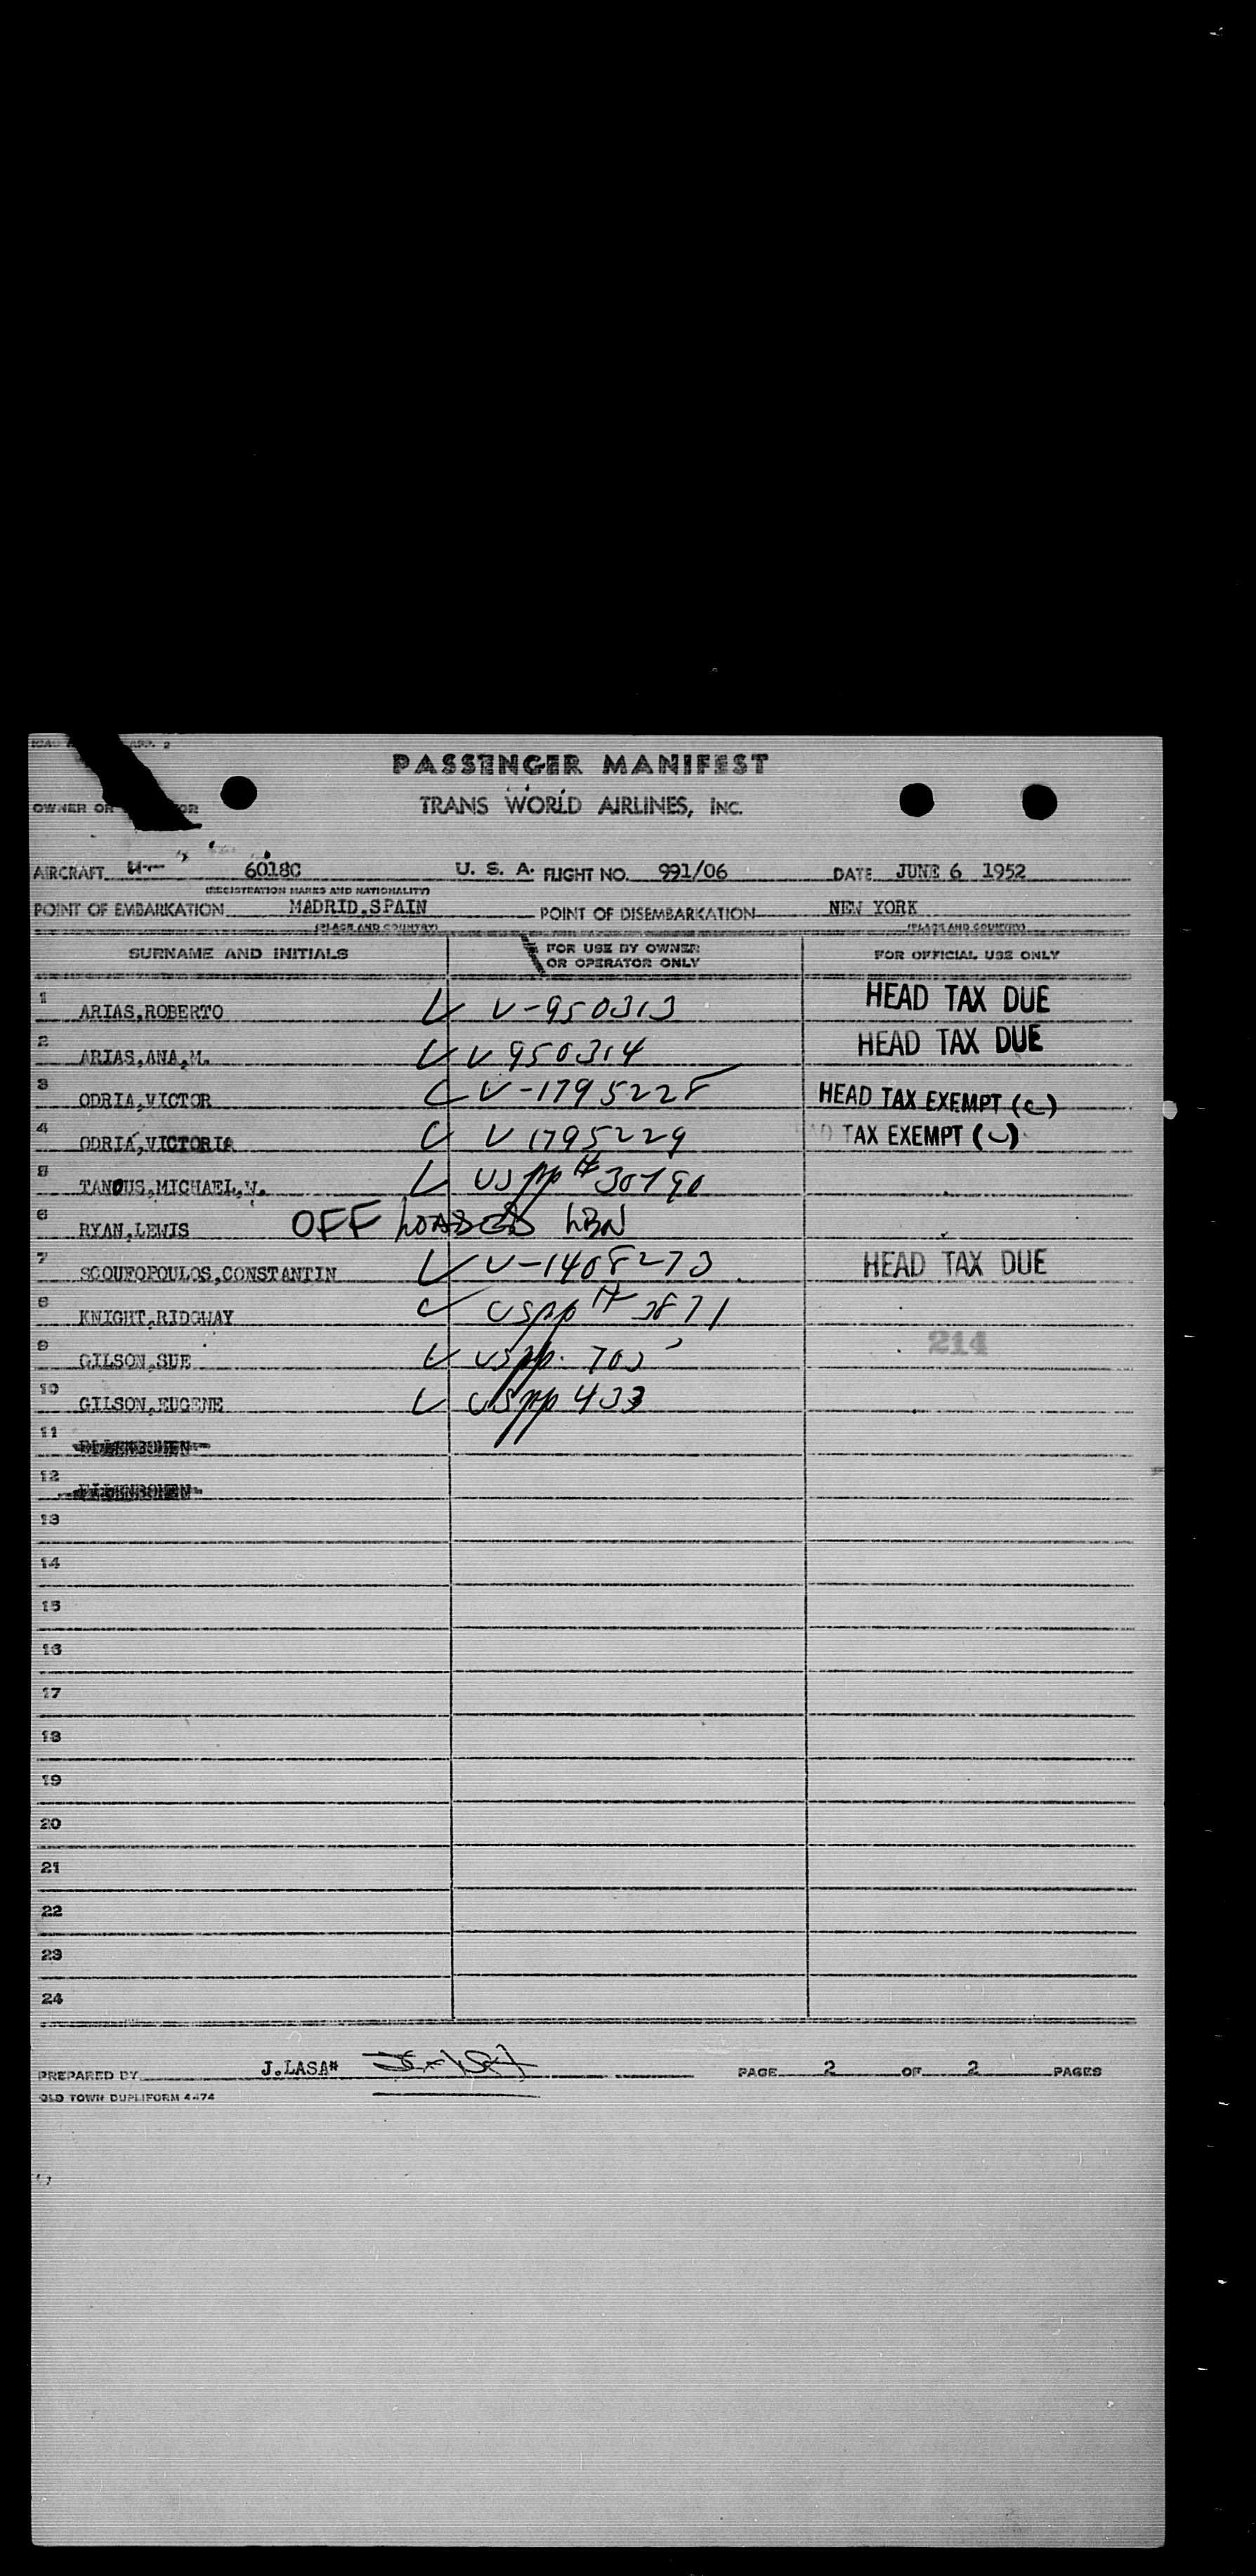 PASSENGER MANIFEST
OWNER OR
TRANS WORLD AIRLINES, INC.
AIRCRAFT 6018C U. S. A. FLIGHT NO. 991/06 DATE JUNE 6 1952
(REGISTRATION MARKS AND NATIONALITY)
POINT OF EMBARKATION MADRID.SPAIN POINT OF DISEMBARKATION NEW YORK
(PLACE AND COUNTRY) (PLACE AND COUNTRY)
SURNAME AND INITIALS FOR USE BY OWNER OR OPERATOR ONLY FOR OFFICIAL USE ONLY
1 ARIAS,ROBERTO V-950313 HEAD TAX DUE
2 ARIAS,ANA,M. V 950314 HEAD TAX DUE
3 ODRIA,VICTOR V-1795228 HEAD TAX EXEMPT (C)
4 ODRIA,VICTORIA V 1795229 TAX EXEMPT (C)
5 TANOUS,MICHAEL,V. US pp #
6 RYAN,LEWIS OFF LOADED LBN
7 SCOUFOPOULOS,CONSTANTIN V-1408273 HEAD TAX DUE
8 KNIGHT,RIDGWAY USpp # 3871
9 GILSON,SUE USpp. 214
10 GILSON,EUGENE USpp 433
11
12
13
14
15
16
17
18
19
20
21
22
23
24
PREPARED BY J.LASA* PAGE 2 OF 2 PAGES
OLD TOWN DUPLIFORM 4474